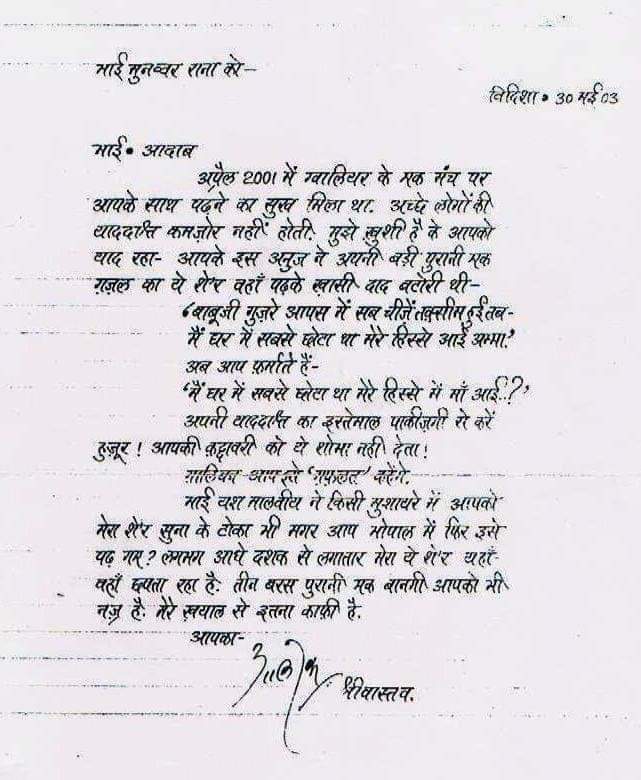 भाई मुनव्वर राना को-
विदिशा • 30 मई 03
भाई • आदाब
अप्रैल 2001 में ग्वालियर के एक मंच पर
आपके साथ पढ़ने का सुख मिला था. अच्छे लोगों की
याददाश्त कमज़ोर नहीं होती. मुझे ख़ुशी है के आपको
याद रहा- आपके इस अनुज ने अपनी बड़ी पुरानी एक
ग़ज़ल का ये शे'र वहाँ पढ़के ख़ासी दाद बटोरी थी-
'बाबूजी गुज़रे आपस में सब चीज़ें तक़्सीम हुईं तब-
मैं घर में सबसे छोटा था मेरे हिस्से आई अम्मा.'
अब आप फ़र्माते हैं-
'मैं घर में सबसे छोटा था मेरे हिस्से में माँ आई..?'
अपनी याददाश्त का इस्तेमाल पाकीज़गी से करें
हुज़ूर ! आपकी क़द्दावरी को ये शोभा नहीं देता !
ग़ालिबन आप इसे 'ग़फ़लत' कहेंगे.
भाई यश मालवीय ने किसी मुशायरे में आपको
मेरा शे'र सुना के टोका भी मगर आप भोपाल में फिर इसे
पढ़ गए ? लगभग आधे दशक से लगातार मेरा ये शे'र यहाँ-
वहाँ छपता रहा है. तीन बरस पुरानी एक बानगी आपको भी
नज़्र है. मेरे ख़याल से इतना काफ़ी है.
आपका-
आलोक
श्रीवास्तव.